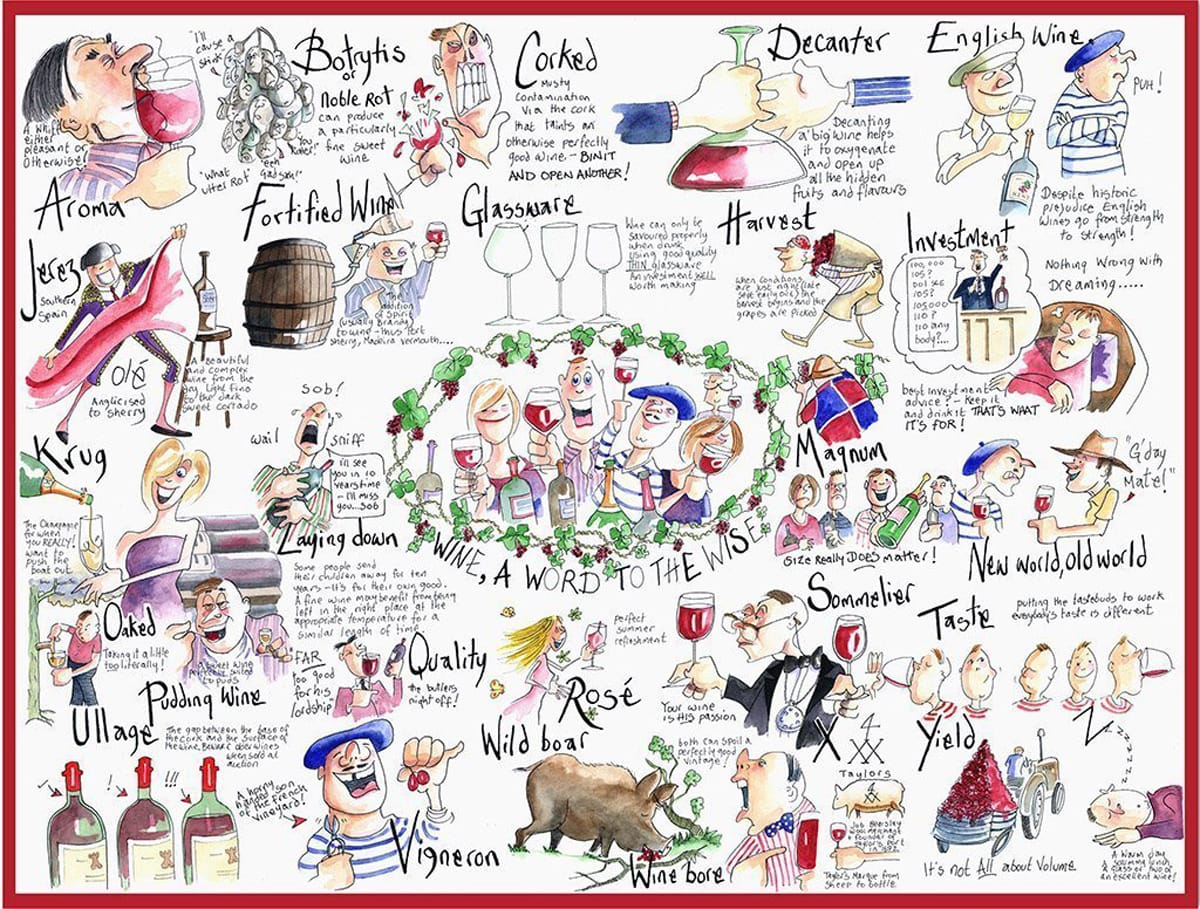 "I'll
cause a
stink"
Botrytis
or
Noble Rot
can produce
a particularly
fine sweet
wine
"What
utter Rot"
A whiff
either
pleasant or
otherwise!
Aroma
Corked
Musty
Contamination
via the cork
that taints an
otherwise perfectly
good wine. - BIN IT
AND OPEN ANOTHER!
Decanter
Decanting
a 'big' wine helps
it to oxygenate
and open up
all the hidden
fruits and flavours
English Wine
PUH!
Despite historic
prejudice English
Wines go from strength
to strength!
Jerez
Southern
Spain
olé
Anglicised
to sherry
A Beautiful
and complex
wine from the
dry light fino
to the dark
sweet
Fortified Wine
The
addition
of Spirit
(usually Brandy)
to wine - thus Port
Sherry, Madeira vermouth....
Glassware
Wine can only be
savoured properly
when drunk
using good quality
THIN glassware
An investment WELL
worth making
Harvest
when conditions
are just right
the
harvest begins and the
grapes are picked
Investment
100,000
105?
105?
105,000
110?
110 any
body?...
Nothing Wrong with
Dreaming.....
best investment
advice? - Keep it
and drink it THAT'S WHAT
IT'S FOR!
Krug
The Champagne
for when
you REALLY!
want to
push the
boat out
sob!
wail
sniff
i'll see
you in 10
years time
- i'll miss
you...sob
Laying down
Some people send
their children away for ten
years - it's for their own good.
A fine wine may benefit from being
left in the right place at the
appropriate temperature for a
similar length of time
WINE, A WORD TO THE WISE
Magnum
Size Really DOES matter!
"G'day
Mate!"
New world, Old world
Oaked
Taking it a little
too literally!
Pudding Wine
A sweet wine
perfectly suited
to puds
"FAR
too good
for his
lordship
Quality
the butlers
night off!
perfect
summer
refreshment
Rosé
Sommelier
Your wine
is HIS passion
Taste
putting the tastebuds to work
everybody's taste is different
Ullage
The gap between the base of
the cork and the surface of
the wine. Beware older wines
when sold at
auction
! !!!
A horny
handed son
of the French
vineyard!
Vigneron
Wild boar
both can spoil a
perfectly good
vintage!
Wine bore
X
Taylors
Job Bearsley
wool merchant
+ founder of
Taylor's port
in 1692
Taylors Marque from
sheep to bottle
Yield
It's not All about Volume
Zzzzzzz
A warm day
a yummy lunch
a glass or two of
an excellent wine!